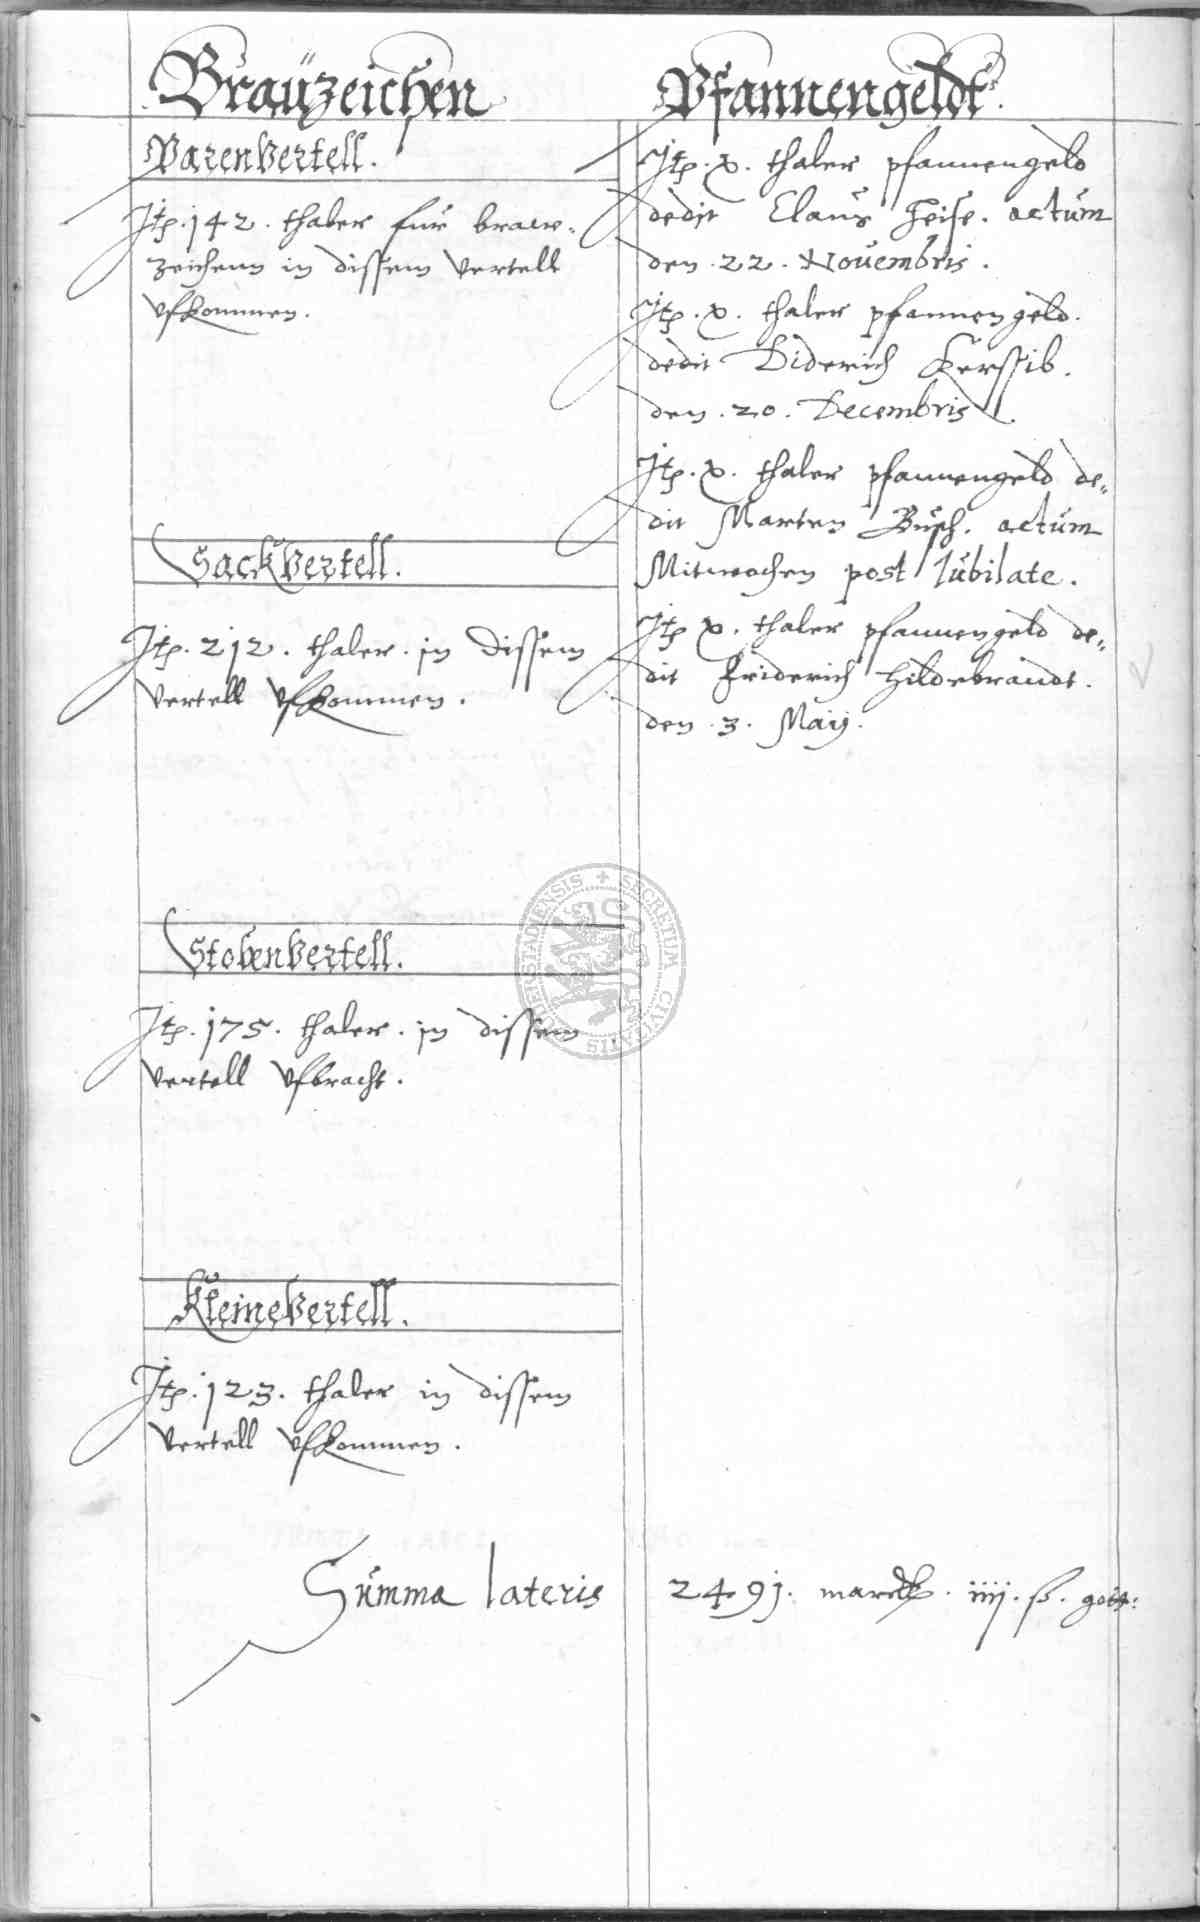 Braüzeichen
ParenVertell.
Itp. 142. thaler für braw-
zeichenn in dissem Vertell
vfkommen.
SackVertell.
Itp. 212. thaler. in dissem
Vertell vfkommen.
StobenVertell.
Itp. 175. thaler. in dissem
Vertell vfbracht.
KleineVertell.
Itp. 123. thaler in dissem
Vertell vfkommen.
Pfannengeldt.
Itp. x. thaler pfannengeld
dedit Claus Heise. actum
den. 22. Nouembris.
Itp. x. thaler pfannengeld.
dedit Diderich Kerssib.
den. 20. Decembris.
Itp. x. thaler pfannengeld de-
dit Marten Busch. actum
Mitwochen post Iubilate.
Itp x. thaler pfannengeld de-
dit Friderich Hildebrandt.
den. 3. Maij.
Summa lateris 2491. marck. iiij. ß. gott:
SECRETUM CIVITATIS DUDERSTADIENSIS